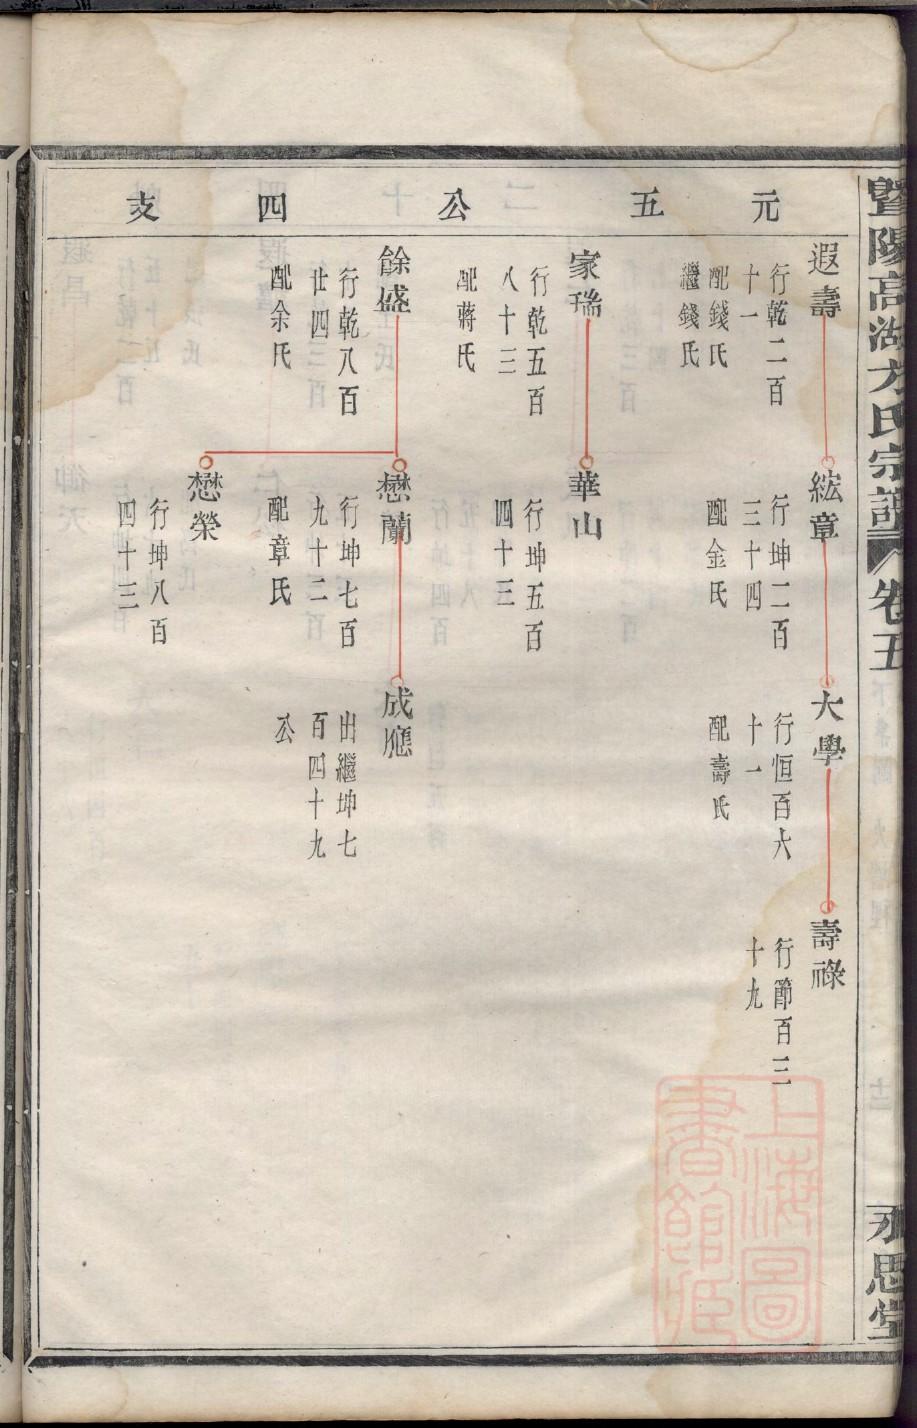 暨陽高湖方氏宗譜 卷五 永思堂
元五公四支
遐壽
行乾二百
十一
配錢氏
繼錢氏
紘章
行坤二百
三十四
配金氏
大學
行恒百六
十一
配壽氏
壽祿
行節百三
十九
家瑞
行乾五百
八十三
配蔣氏
華山
行坤五百
四十三
餘盛
行乾八百
廿四
配余氏
懋蘭
行坤七百
九十二
配章氏
成應
出繼坤七
百四十九
公
懋榮
行坤八百
四十三
上海圖
書館藏